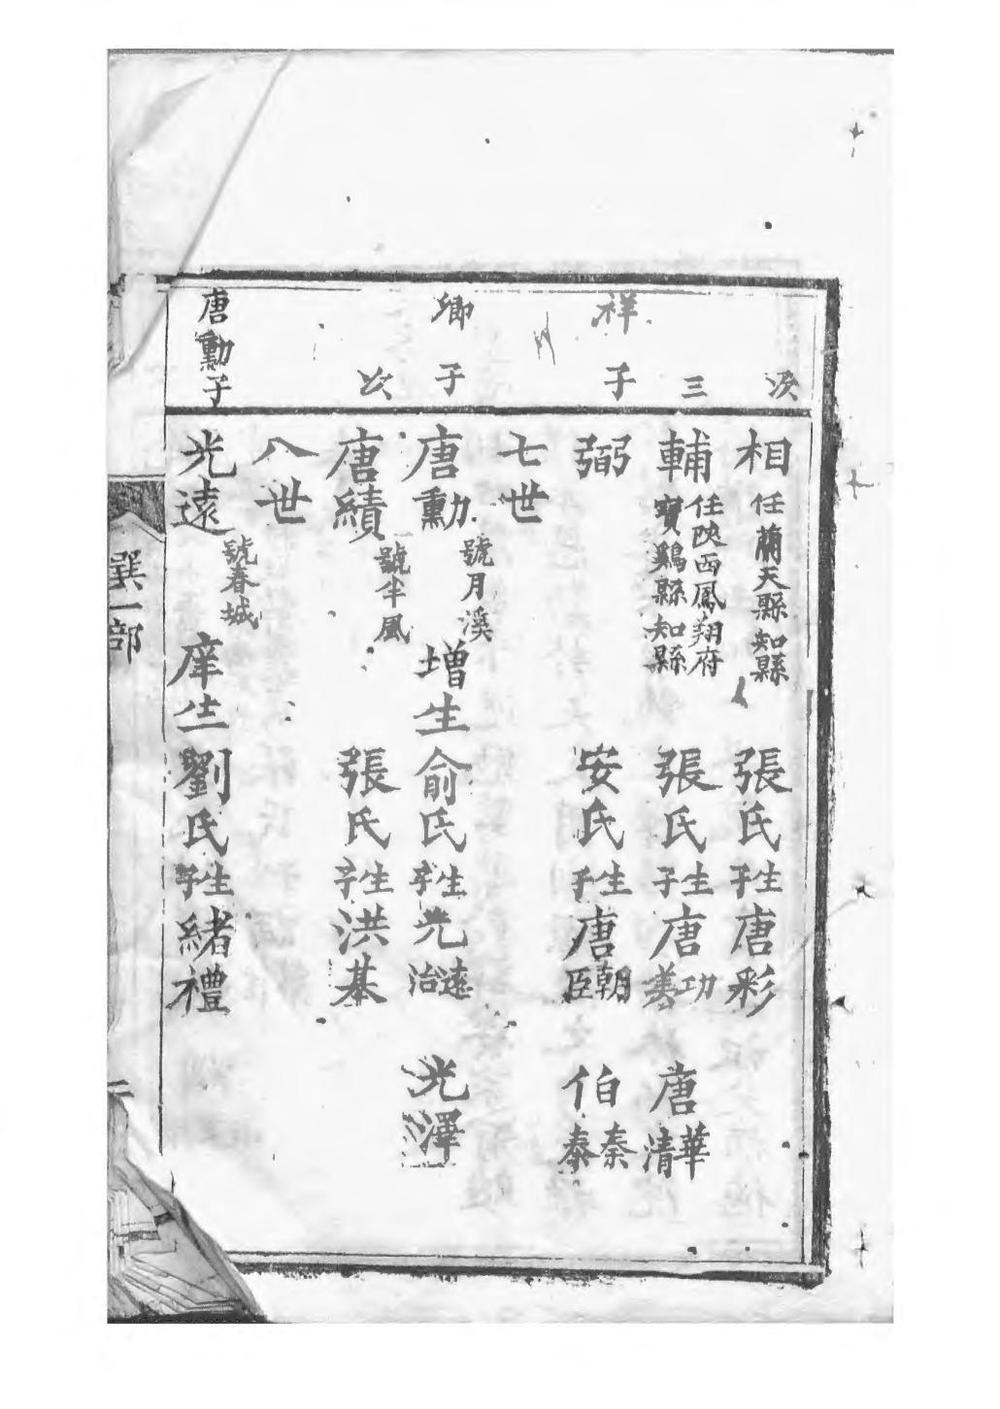 次 相 任蘭天縣知縣 張氏生子唐彩
三 輔 任陝西鳳翔府寶鷄縣知縣 張氏生子唐功 唐善 唐華 清
祥子 弼 安氏生子唐朝 臣 伯秦 泰
七世
卿子 唐勳 號月溪 增生 俞氏生子光遠 光治 光澤
次 唐績 號半風 張氏生子洪基
八世
唐勳子 光遠 號春城 庠生 劉氏生子緒禮
巽一部